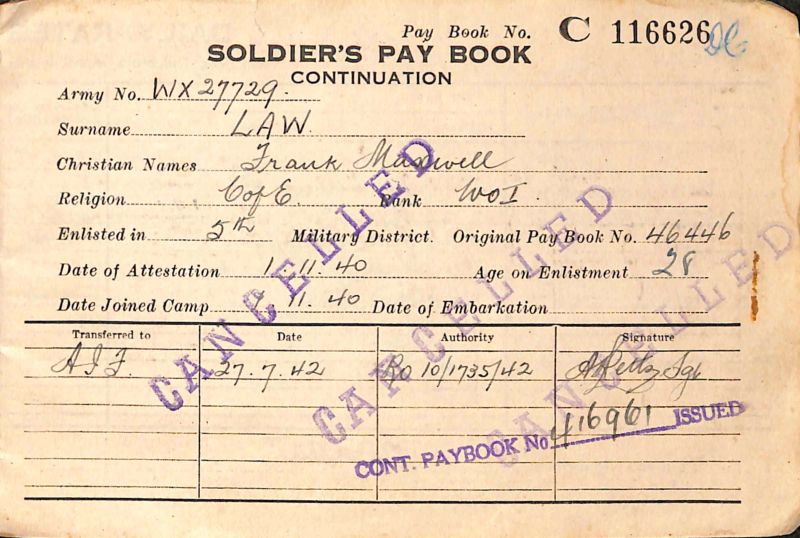 Pay Book No. C 116626
SOLDIER'S PAY BOOK
CONTINUATION
Army No. WX27729.
Surname LAW.
Christian Names Frank Maxwell
Religion C of E. Rank WO I.
Enlisted in 5th Military District. Original Pay Book No. 46446
Date of Attestation 1.11.40 Age on Enlistment 28
Date Joined Camp 1.11.40 Date of Embarkation
Transferred to Date Authority Signature
A I F. 27.7.42 Ro 10/1735/42 Sgt
CONT. PAYBOOK No. 416961 ISSUED
CANCELLED
CANCELLED
CANCELLED